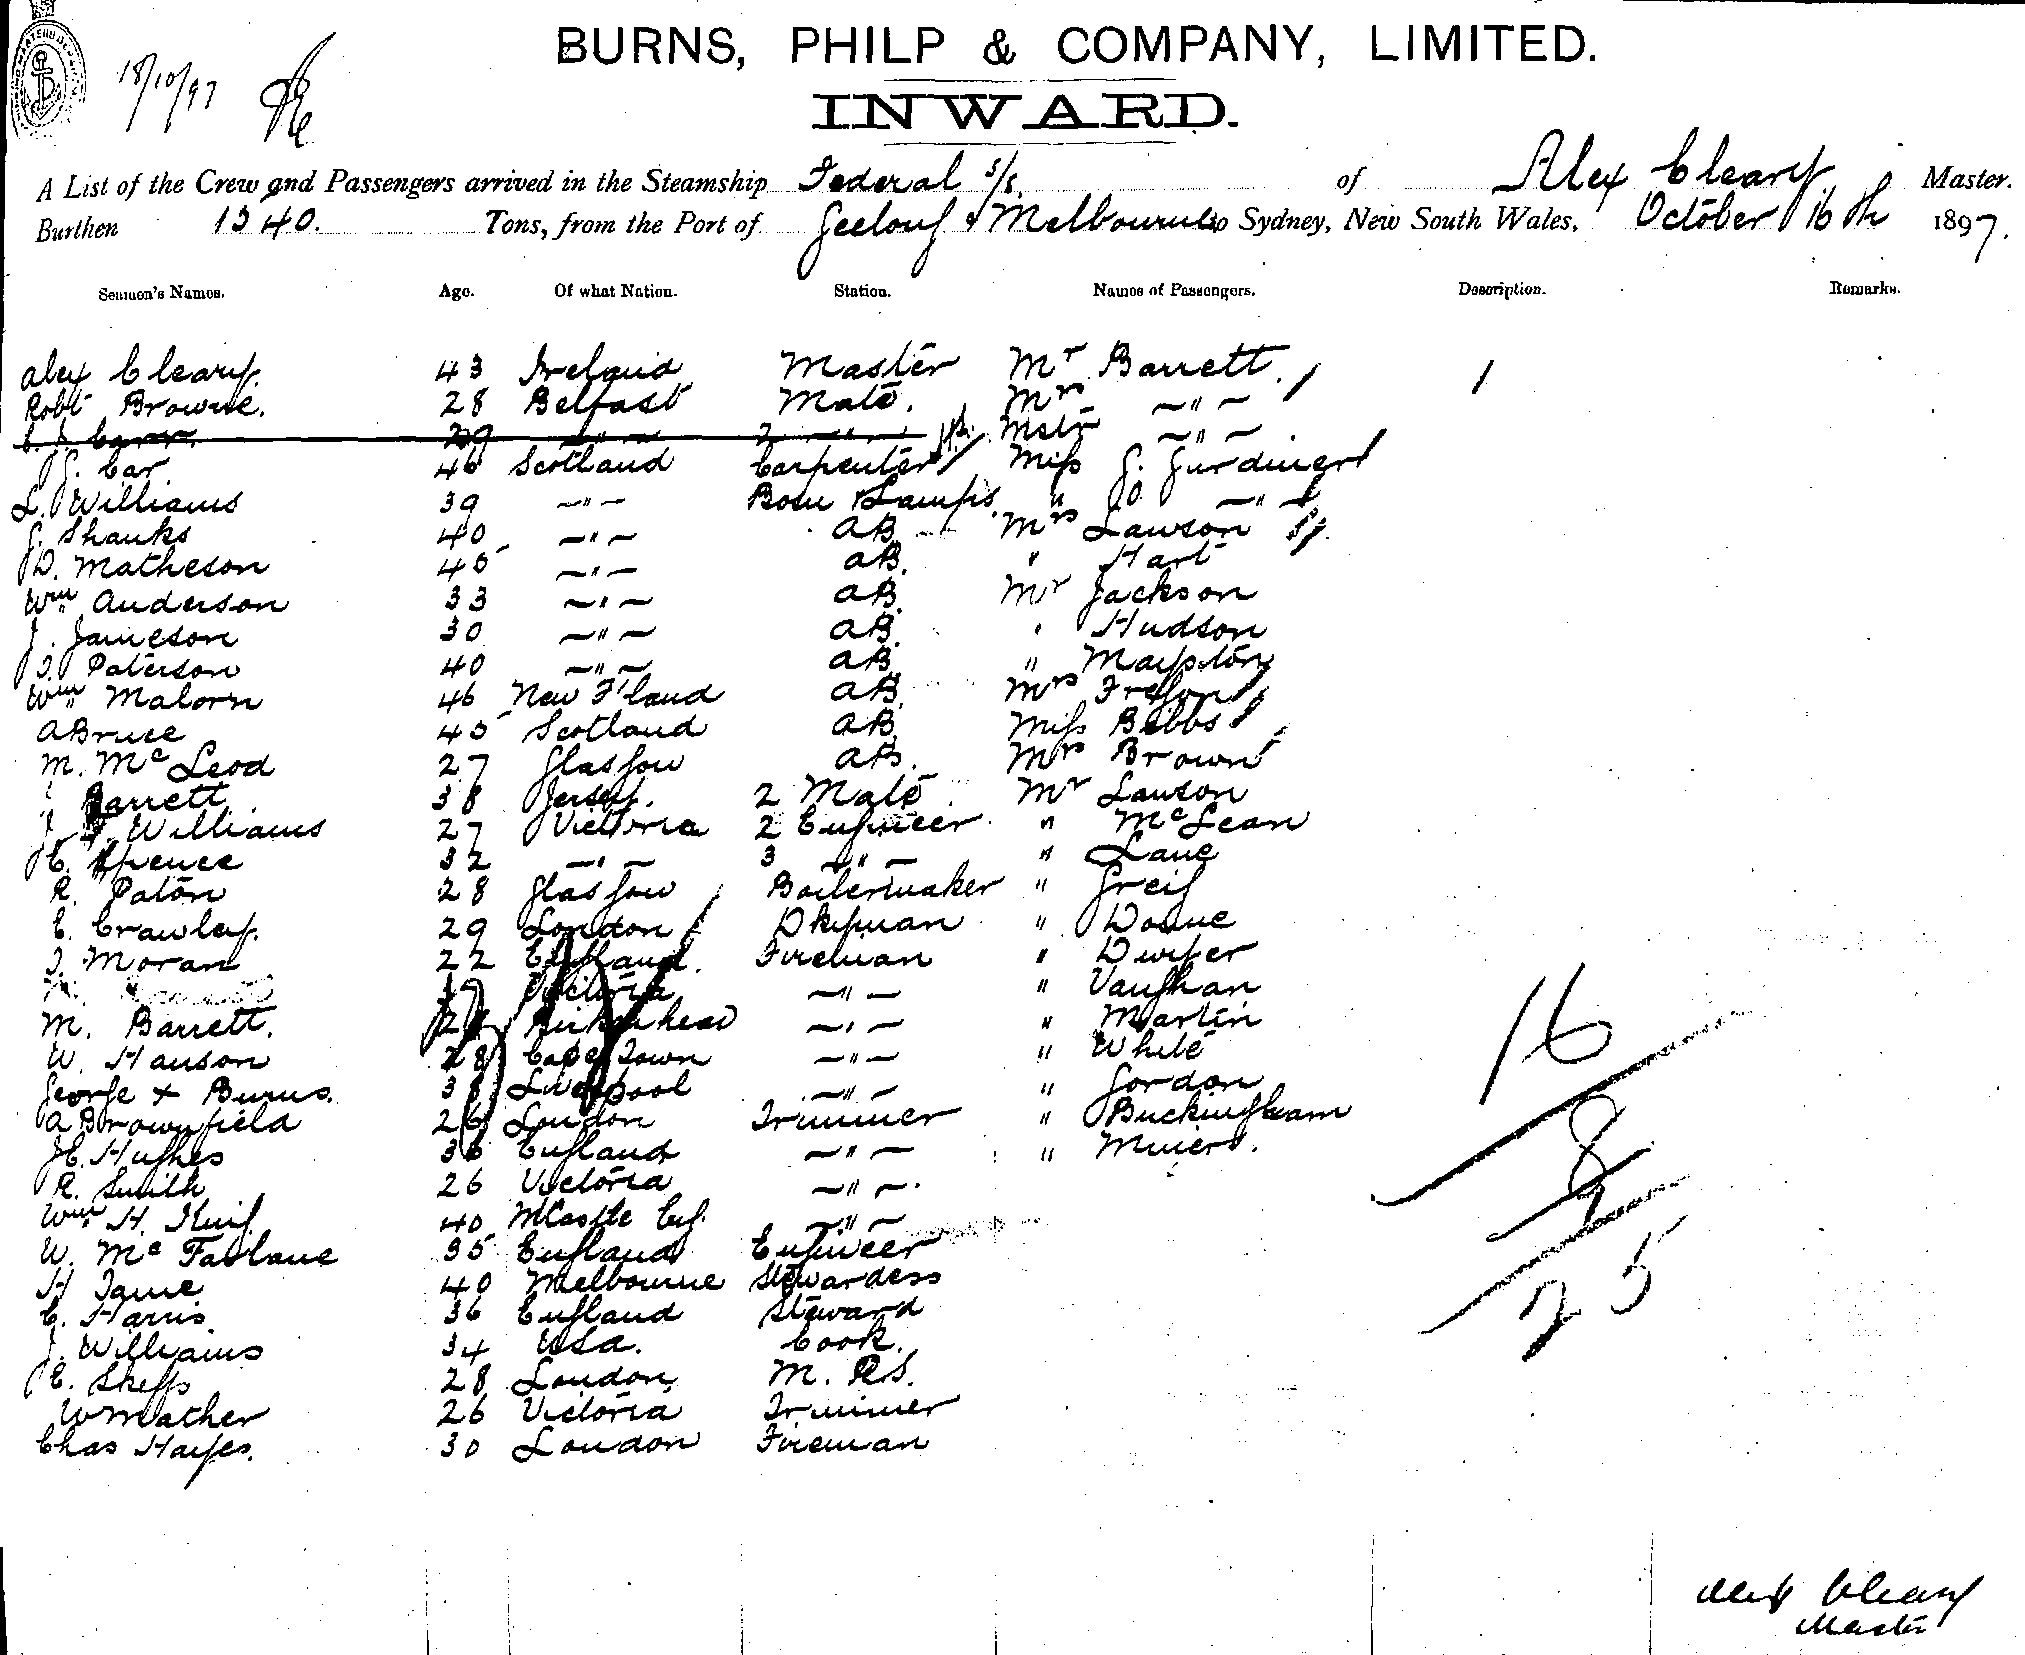 18/10/97
BURNS, PHILP & COMPANY, LIMITED.
INWARD.
A List of the Crew and Passengers arrived in the Steamship Federal s/s. of Alex Cleary Master.
Burthen 1340. Tons, from the Port of Geelong & Melbourne to Sydney, New South Wales, October 16th 1897.
Seamen's Names. Age. Of what Nation. Station. Names of Passengers. Description. Remarks.
Alex Cleary. 43 Ireland Master Mr Barrett. 1
Robt Browne. 28 Belfast Mate. Mrs —"—
29 —"— 2 —"— Mstr —"—
J. Car 46 Scotland Carpenter Miss J. Gurdiner
L. Williams 39 —"— Bosn & Lamps. " —"—
J. Shanks 40 —"— AB Mrs Lawson
D. Matheson 45 —"— AB. " Hart
Wm Anderson 33 —"— AB. Mr Jackson
J. Jameson 30 —"— AB. " Hudson
Paterson 40 —"— AB "
Wm Malorn 46 New F'land AB. Mrs
A Bruce 45 Scotland AB. Miss Bibbs
M. McLeod 27 Glasgow AB. Mrs Brown
Barrett 38 Jersey. 2 Mate Mr Lawson
Williams 27 Victoria 2 Engineer " McLean
Spence 32 —"— 3 —"— " Lane
R. Paton 28 Glasgow Boilermaker " Greig
C. Crawley. 29 London Dkyman " Doane
Moran 22 England. Fireman " Dwyer
Victoria —"— " Vaughan
M. Barrett. Birkenhead —"— " Martin
W. Hanson 28 Cape Town —"— " White
George + Burns. 38 Liverpool —"— " Gordon
A Brownfield 26 London Trimmer " Buckingham
Hughes 36 England —"— "
R. Smith 26 Victoria —"—
Wm H. 40 NCastle Eng. —"—
W. McFarlane 35 England Engineer
H 40 Melbourne Stewardess
C. Harris 36 England Steward
J. Williams 34 USA. Cook.
28 London, M. RS.
W Mather 26 Victoria Trimmer
Chas Hayes. 30 London Fireman
16
8
25
Alex Cleary
Master